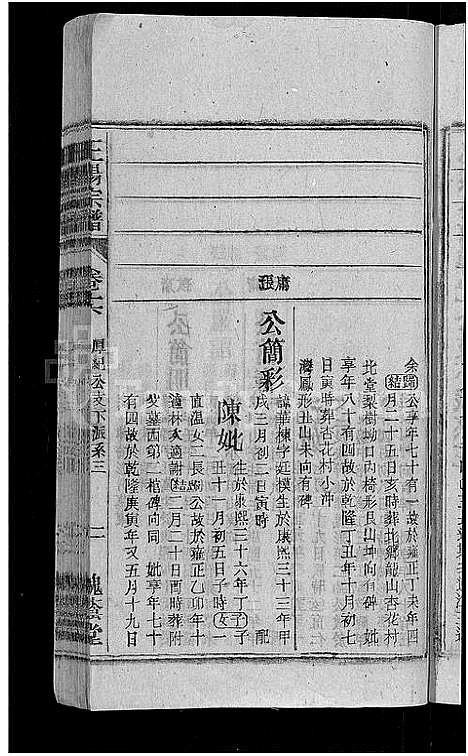 余歸公享年七十有一故於雍正丁未年四
結月二十五日亥時葬北鄉龍山杏花村
北堂梨樹坳口內椅形艮山坤向有碑 妣
享年八十有四故於乾隆丁丑年十月初七
日寅時葬杏花村小沖
灣鳳形丑山未向有碑
庸
張
公簡彩
諱華棟字廷模生於康熙三十三年甲
戌三月初二日寅時 配
陳妣
生於康熙三十六年丁丑子子
丑十一月初五日子時女一
直溫女二長歸公故於雍正乙卯年十
適林次適謝結二月二十日酉時葬附
父墓西第二棺碑向同 妣享年七十
有四故於乾隆庚寅年又五月十九日
宗譜
卷六
公支下派系三
二
槐蔭堂